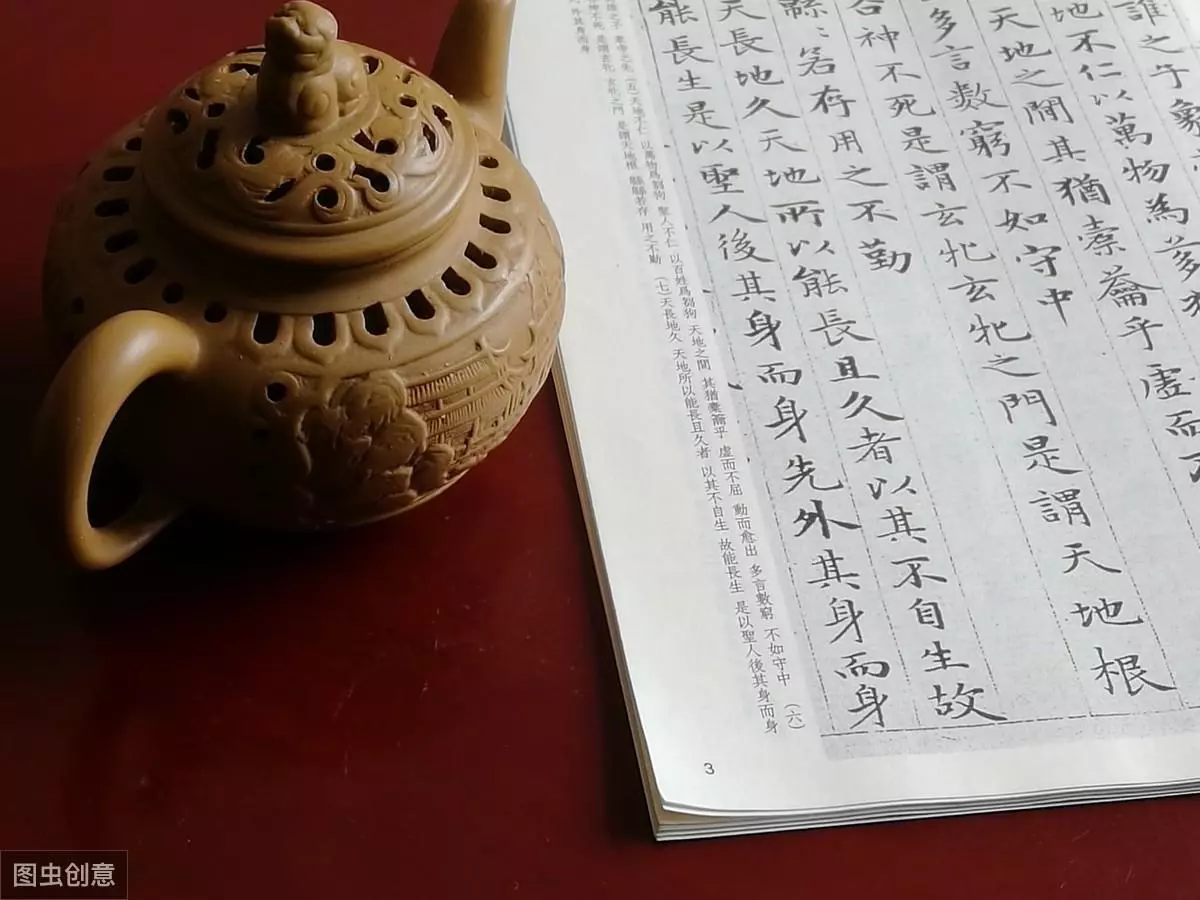 誰之子象
地不仁以萬物為芻
天地之閒其猶橐籥乎虛而
多言數窮不如守中
谷神不死是謂玄牝玄牝之門是謂天地根
緜〻若存用之不勤
天長地久天地所以能長且久者以其不自生故
能長生是以聖人後其身而身先外其身而身
誰之子 象帝之先 （五）天地不仁 以萬物爲芻狗 聖人不仁 以百姓爲芻狗 天地之間 其猶橐籥乎 虛而不屈 動而愈出 多言數窮 不如守中 （六）
神不死 是謂玄牝 玄牝之門 是謂天地根 緜緜若存 用之不勤 （七）天長地久 天地所以能長且久者 以其不自生 故能長生 是以聖人後其身而身
外其身而身
3
图虫创意